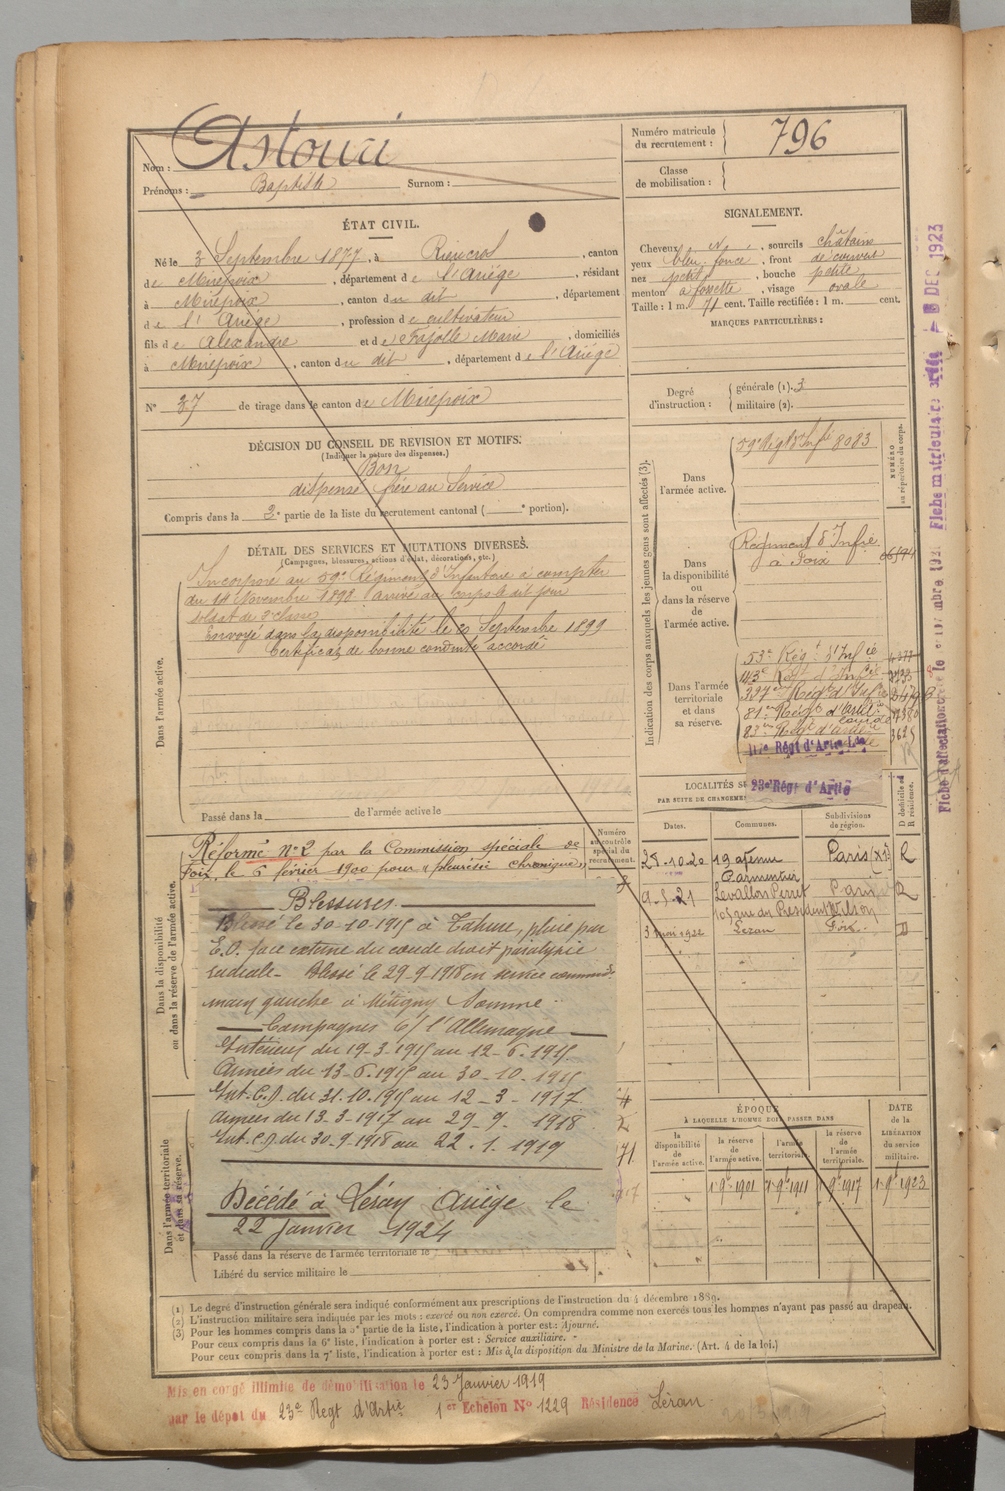 Nom : Astouri
Prénoms : Baptiste Surnom :
Numéro matricule du recrutement : 796
Classe de mobilisation :
ÉTAT CIVIL.
Né le 3 Septembre 1877, à Rieucros, canton
de Mirepoix, département de l'Ariège, résidant
à Mirepoix, canton du dit, département
de l'Ariège, profession de cultivateur
fils de Alexandre et de Fajolle Marie, domiciliés
à Mirepoix, canton du dit, département de l'Ariège
N° 37 de tirage dans le canton de Mirepoix
SIGNALEMENT.
Cheveux, sourcils châtains
yeux bleu foncé, front de couvert
nez petit, bouche petite
menton à fossette, visage ovale
Taille : 1 m. 71 cent. Taille rectifiée : 1 m. cent.
MARQUES PARTICULIÈRES :
Degré d'instruction : générale (1). 3
militaire (2).
DÉCISION DU CONSEIL DE REVISION ET MOTIFS.
(Indiquer la nature des dispenses.)
Bon
dispensé frère au Service
Compris dans la 2e partie de la liste du recrutement cantonal ( e portion).
DÉTAIL DES SERVICES ET MUTATIONS DIVERSES.
(Campagnes, blessures, actions d'éclat, décorations, etc.)
Dans l'armée active.
Incorporé au 59e Régiment d'Infanterie à compter
du 14 Novembre 1898 arrivé au corps le dit jour
soldat de 2e classe
Envoyé dans la disponibilité le 20 Septembre 1899
Certificat de bonne conduite accordé
Passé dans la de l'armée active le
Indication des corps auxquels les jeunes gens sont affectés (3).
NUMÉRO au répertoire du corps.
Dans l'armée active.
59e Régt d'Infie 8083
Dans la disponibilité ou dans la réserve de l'armée active.
Régiment d'Infie
à Foix
Dans l'armée territoriale et dans sa réserve.
53e Régt d'Infie
143e Régt d'Infie
337e Régt d'Infie
81e Régt d'Artie
83e Régt d'Artie
117e Régt d'Artie Lde
23e Régt d'Artie
LOCALITÉS
PAR SUITE DE CHANGEMEN
D domicile ou R résidence.
Dates. Communes. Subdivisions de région.
28.10.20 19 avenue Parmentier Paris R
9.5.21 Levallois Perret Paris R
105 rue du Président Wilson
3 1922 Leran Foix R
Dans la disponibilité ou dans la réserve de l'armée active.
Numéro au contrôle spécial du recrutement.
Réformé N°2 par la Commission spéciale de
Foix le 6 février 1900 pour "pleurésie chronique"
Blessures.
Blessé le 30-10-1915 à Tahure, plaie par
E.O. face externe du coude droit paralysie
radiale. Blessé le 29-9-1918 en service commdé
main gauche à Métigny Somme.
Campagnes c/ l'Allemagne
Intérieur du 19-3-1915 au 12-6-1915
Armées du 13-6-1915 au 30-10-1915
Int. C.D. du 31.10.1915 au 12-3-1917
Armées du 13-3-1917 au 29-9-1918
Int. C.D. du 30-9-1918 au 22.1.1919
Décédé à Léran Ariège le
22 Janvier 1924
Dans l'armée territoriale et dans sa réserve.
Passé dans la réserve de l'armée territoriale le
Libéré du service militaire le
ÉPOQUE
À LAQUELLE L'HOMME DOIT PASSER DANS
DATE de la LIBÉRATION du service militaire.
la disponibilité de l'armée active. la réserve de l'armée active. l'armée territoriale. la réserve de l'armée territoriale.
1 9e 1901 1 9e 1911 1 9e 1917 1 9e 1923
(1) Le degré d'instruction générale sera indiqué conformément aux prescriptions de l'instruction du 4 décembre 1889.
(2) L'instruction militaire sera indiquée par les mots : exercé ou non exercé. On comprendra comme non exercés tous les hommes n'ayant pas passé au drapeau.
(3) Pour les hommes compris dans la 5e partie de la liste, l'indication à porter est : Ajourné.
Pour ceux compris dans la 6e liste, l'indication à porter est : Service auxiliaire.
Pour ceux compris dans la 7e liste, l'indication à porter est : Mis à la disposition du Ministre de la Marine. (Art. 4 de la loi.)
Mis en congé illimité de démobilisation le 23 Janvier 1919
par le dépot du 23e Régt d'Artie 1er Echelon N° 1229 Résidence Léran